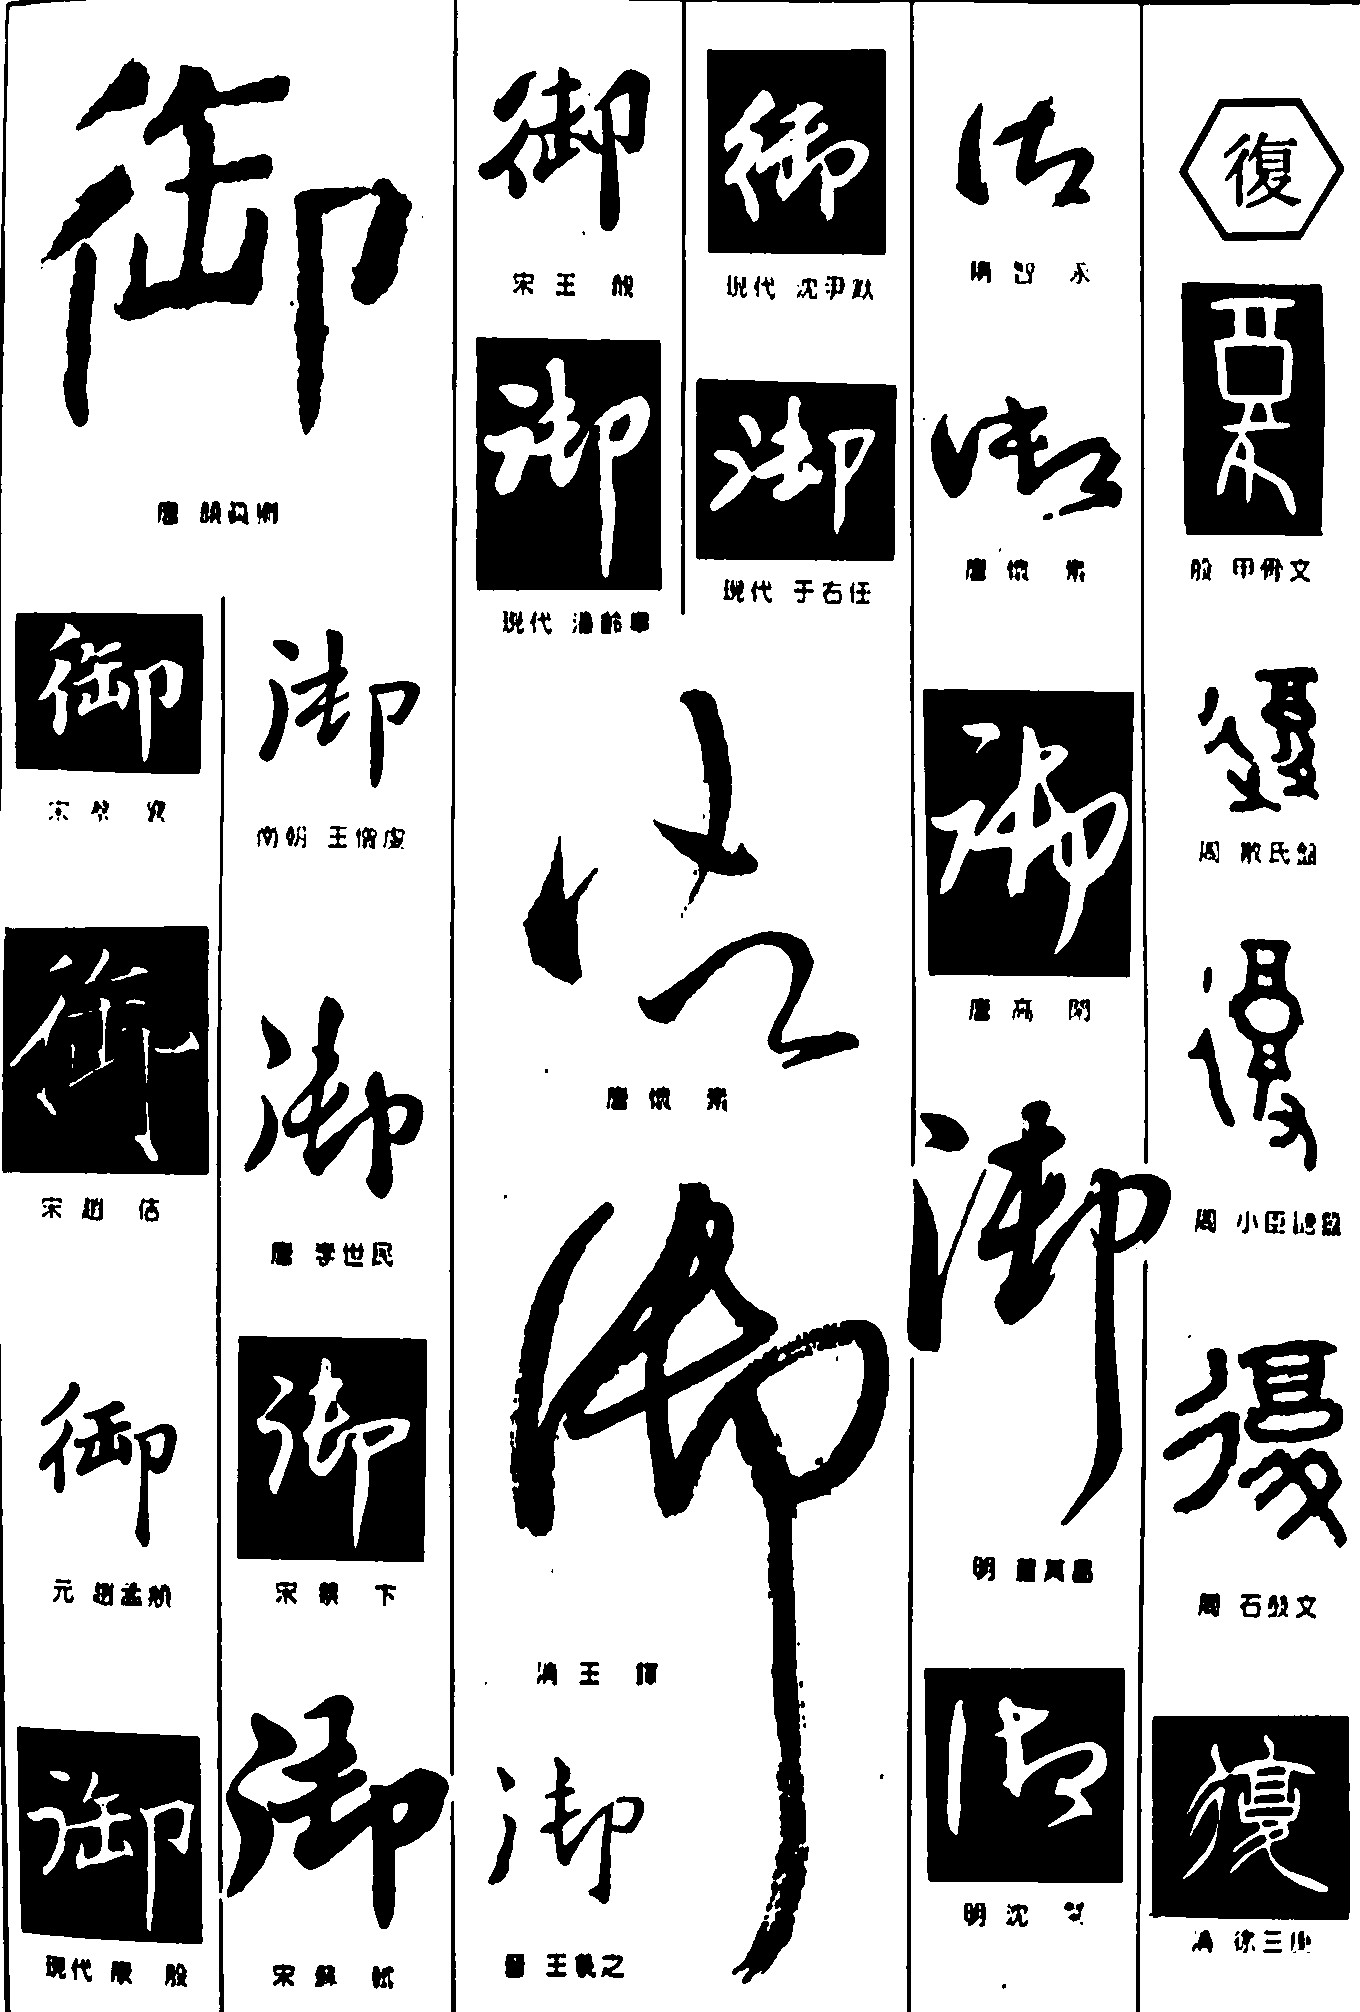 復
殷 甲骨文
周 散氏盤
周 小臣
周 石鼓文
清 徐三庚
御
隋 智 永
御
唐 懷 素
御
唐 高 閑
御
明 董其昌
御
明 沈 粲
御
現代 沈尹默
御
現代 于右任
御
宋 王
御
現代 潘齡皋
御
唐 懷 素
御
清 王 鐸
御
晉 王羲之
御
唐 顏真卿
御
南朝 王僧虔
御
唐 李世民
御
宋 蔡 卞
御
宋 蘇 軾
御
宋 蔡 襄
御
宋 趙 佶
御
元 趙孟頫
御
現代 康 殷